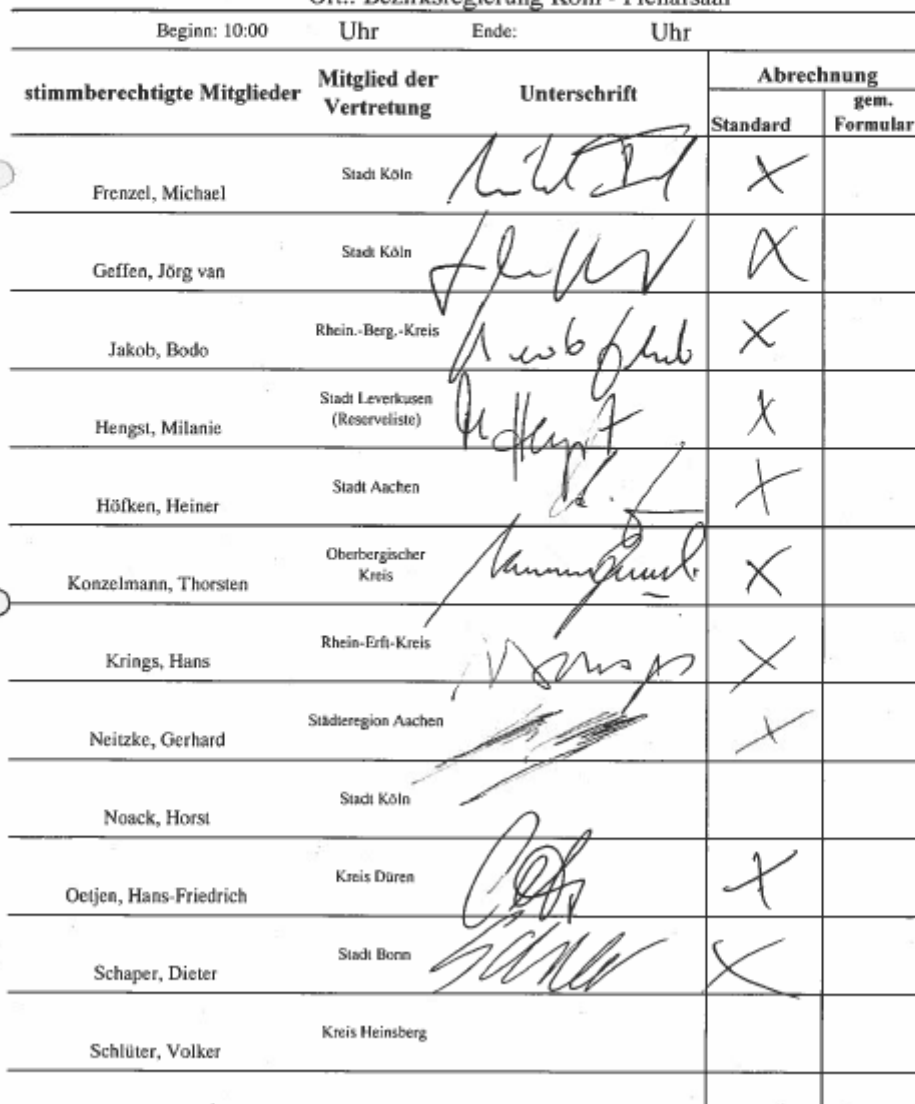 Ort.: Bezirksregierung Köln - Plenarsaal
Beginn: 10:00 Uhr Ende: Uhr
stimmberechtigte Mitglieder Mitglied der Vertretung Unterschrift Abrechnung
Standard gem. Formular
Frenzel, Michael Stadt Köln X
Geffen, Jörg van Stadt Köln X
Jakob, Bodo Rhein.-Berg.-Kreis X
Hengst, Milanie Stadt Leverkusen (Reserveliste) X
Höfken, Heiner Stadt Aachen X
Konzelmann, Thorsten Oberbergischer Kreis X
Krings, Hans Rhein-Erft-Kreis X
Neitzke, Gerhard Städteregion Aachen X
Noack, Horst Stadt Köln
Oetjen, Hans-Friedrich Kreis Düren X
Schaper, Dieter Stadt Bonn X
Schlüter, Volker Kreis Heinsberg